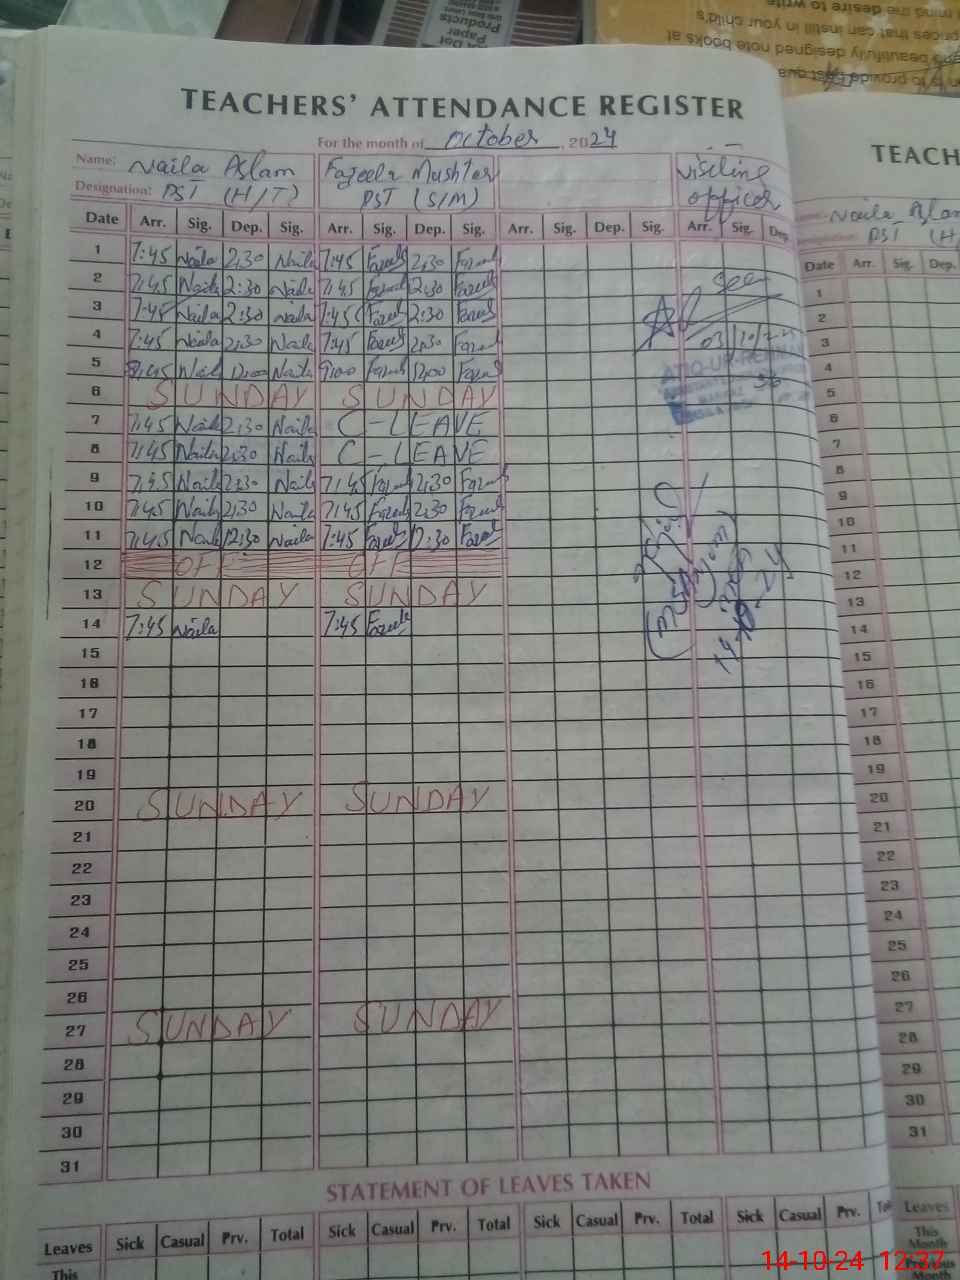 Paper
Products
mind the desire to write
prices that can instill in your child's
beautifully designed note books at
to provide
TEACHERS' ATTENDANCE REGISTER
For the month of October, 2024
Name: Naila Aslam Fazeela Mushtaq Visiting
Designation: PST (H/T) PST (S/M) officer
Date Arr. Sig. Dep. Sig. Arr. Sig. Dep. Sig. Arr. Sig. Dep. Sig. Arr. Sig. Dep.
1 7:45 Naila 2:30 Naila 7:45 2:30
2 7:45 Naila 2:30 Naila 7:45 2:30 See
3 7:45 Naila 2:30 Naila 7:45 2:30
4 7:45 Naila 2:30 Naila 7:45 2:30
5 8:45 Naila 12:00 Naila 9:00 12:00
6 SUNDAY SUNDAY
7 7:45 Naila 2:30 Naila C-LEAVE
8 7:45 Naila 2:30 Naila C-LEAVE
9 7:45 Naila 2:30 Naila 7:45 2:30
10 7:45 Naila 2:30 Naila 7:45 2:30
11 7:45 Naila 12:30 Naila 7:45 12:30
12 OFF OFF
13 SUNDAY SUNDAY
14 7:45 Naila 7:45
15
16
17
18
19
20 SUNDAY SUNDAY
21
22
23
24
25
26
27 SUNDAY SUNDAY
28
29
30
31
STATEMENT OF LEAVES TAKEN
Leaves Sick Casual Prv. Total Sick Casual Prv. Total Sick Casual Prv. Total Sick Casual Prv.
This
TEACH
Naila Aslam
PST (H
Date Arr. Sig. Dep.
1
2
3
4
5
6
7
8
9
10
11
12
13
14
15
16
17
18
19
20
21
22
23
24
25
26
27
28
29
30
31
Leaves
This
Month
14-10-24 12:37